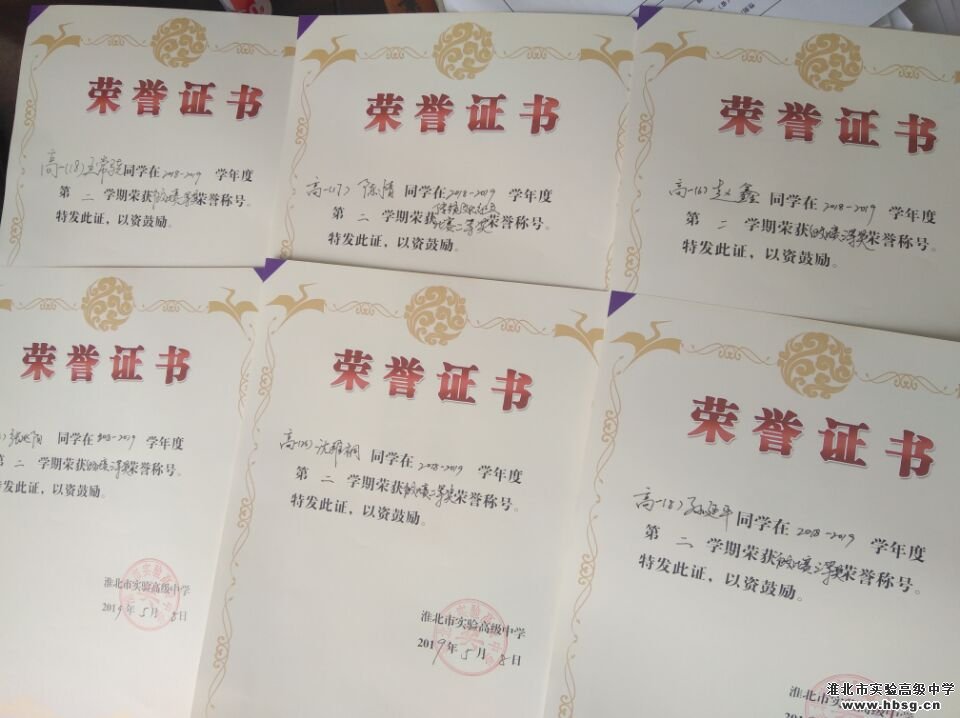 荣誉证书
同学在2018-2019 学年度
第 二 学期荣获 荣誉称号。
特发此证，以资鼓励。
荣誉证书
高一(7) 陈情 同学在2018-2019 学年度
第 二 学期荣获 二等奖荣誉称号。
特发此证，以资鼓励。
荣誉证书
高一(6) 赵鑫 同学在2018-2019 学年度
第 二 学期荣获 荣誉称号。
特发此证，以资鼓励。
荣誉证书
同学在 2018-2019 学年度
二 学期荣获 荣誉称号。
发此证，以资鼓励。
淮北市实验高级中学
2019年 5月 8日
荣誉证书
同学在 2018-2019 学年度
第 二 学期荣获 二等奖荣誉称号。
特发此证，以资鼓励。
淮北市实验高级中学
2019年 5月 8日
荣誉证书
高一(8) 孙延平 同学在 2018-2019 学年度
第 二 学期荣获 荣誉称号。
特发此证，以资鼓励。
淮北市
淮北市实验高级中学
www.hbsg.cn